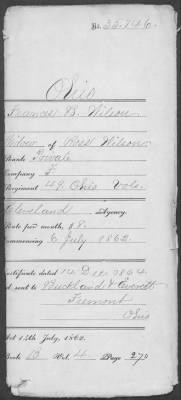 No. 35.746.
Ohio
Frances B. Wilson
Widow of Rees Wilson
Rank Private
Company F.
Regiment 49 Ohio Vols.
Cleveland Agency.
Rate per month, $8.
Commencing 6 July 1862.
Certificate dated 14 Dec. 1864
d sent to Buckland & Everett
Fremont
Ohio
Act 14th July, 1862.
Book B Vol. 4 Page 270